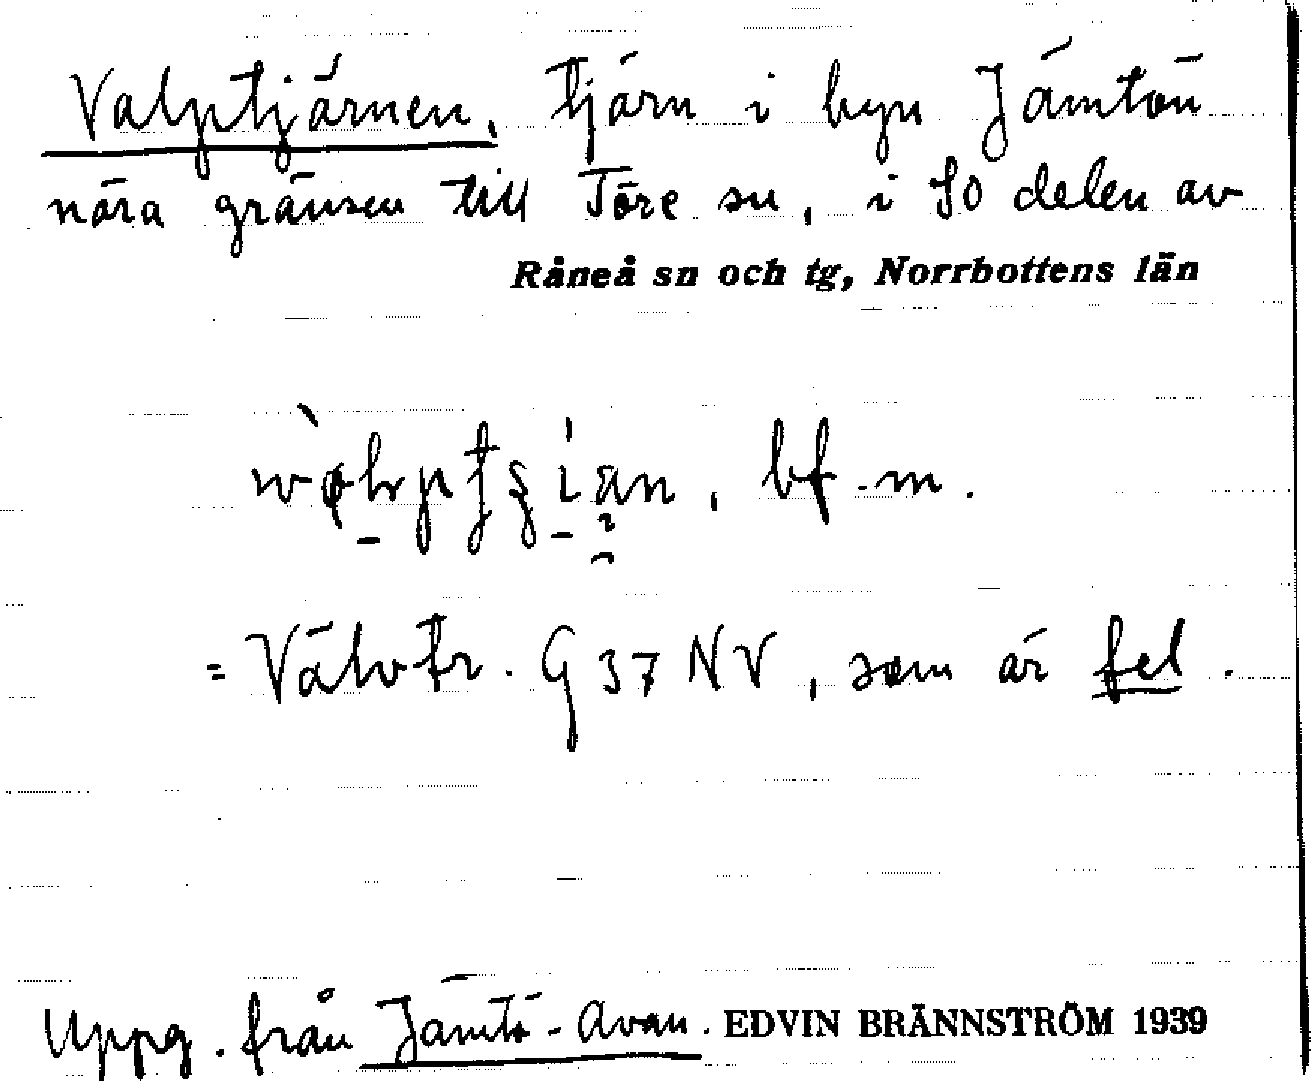 Valptjärnen, tjärn i byn Jämtön
nära gränsen till Töre sn, i SO delen av
Råneå sn och tg, Norrbottens län
bf. m.
= Välvtr. G 37 NV, som är fel.
Uppg. från Jämtö-Avan. EDVIN BRÄNNSTRÖM 1939